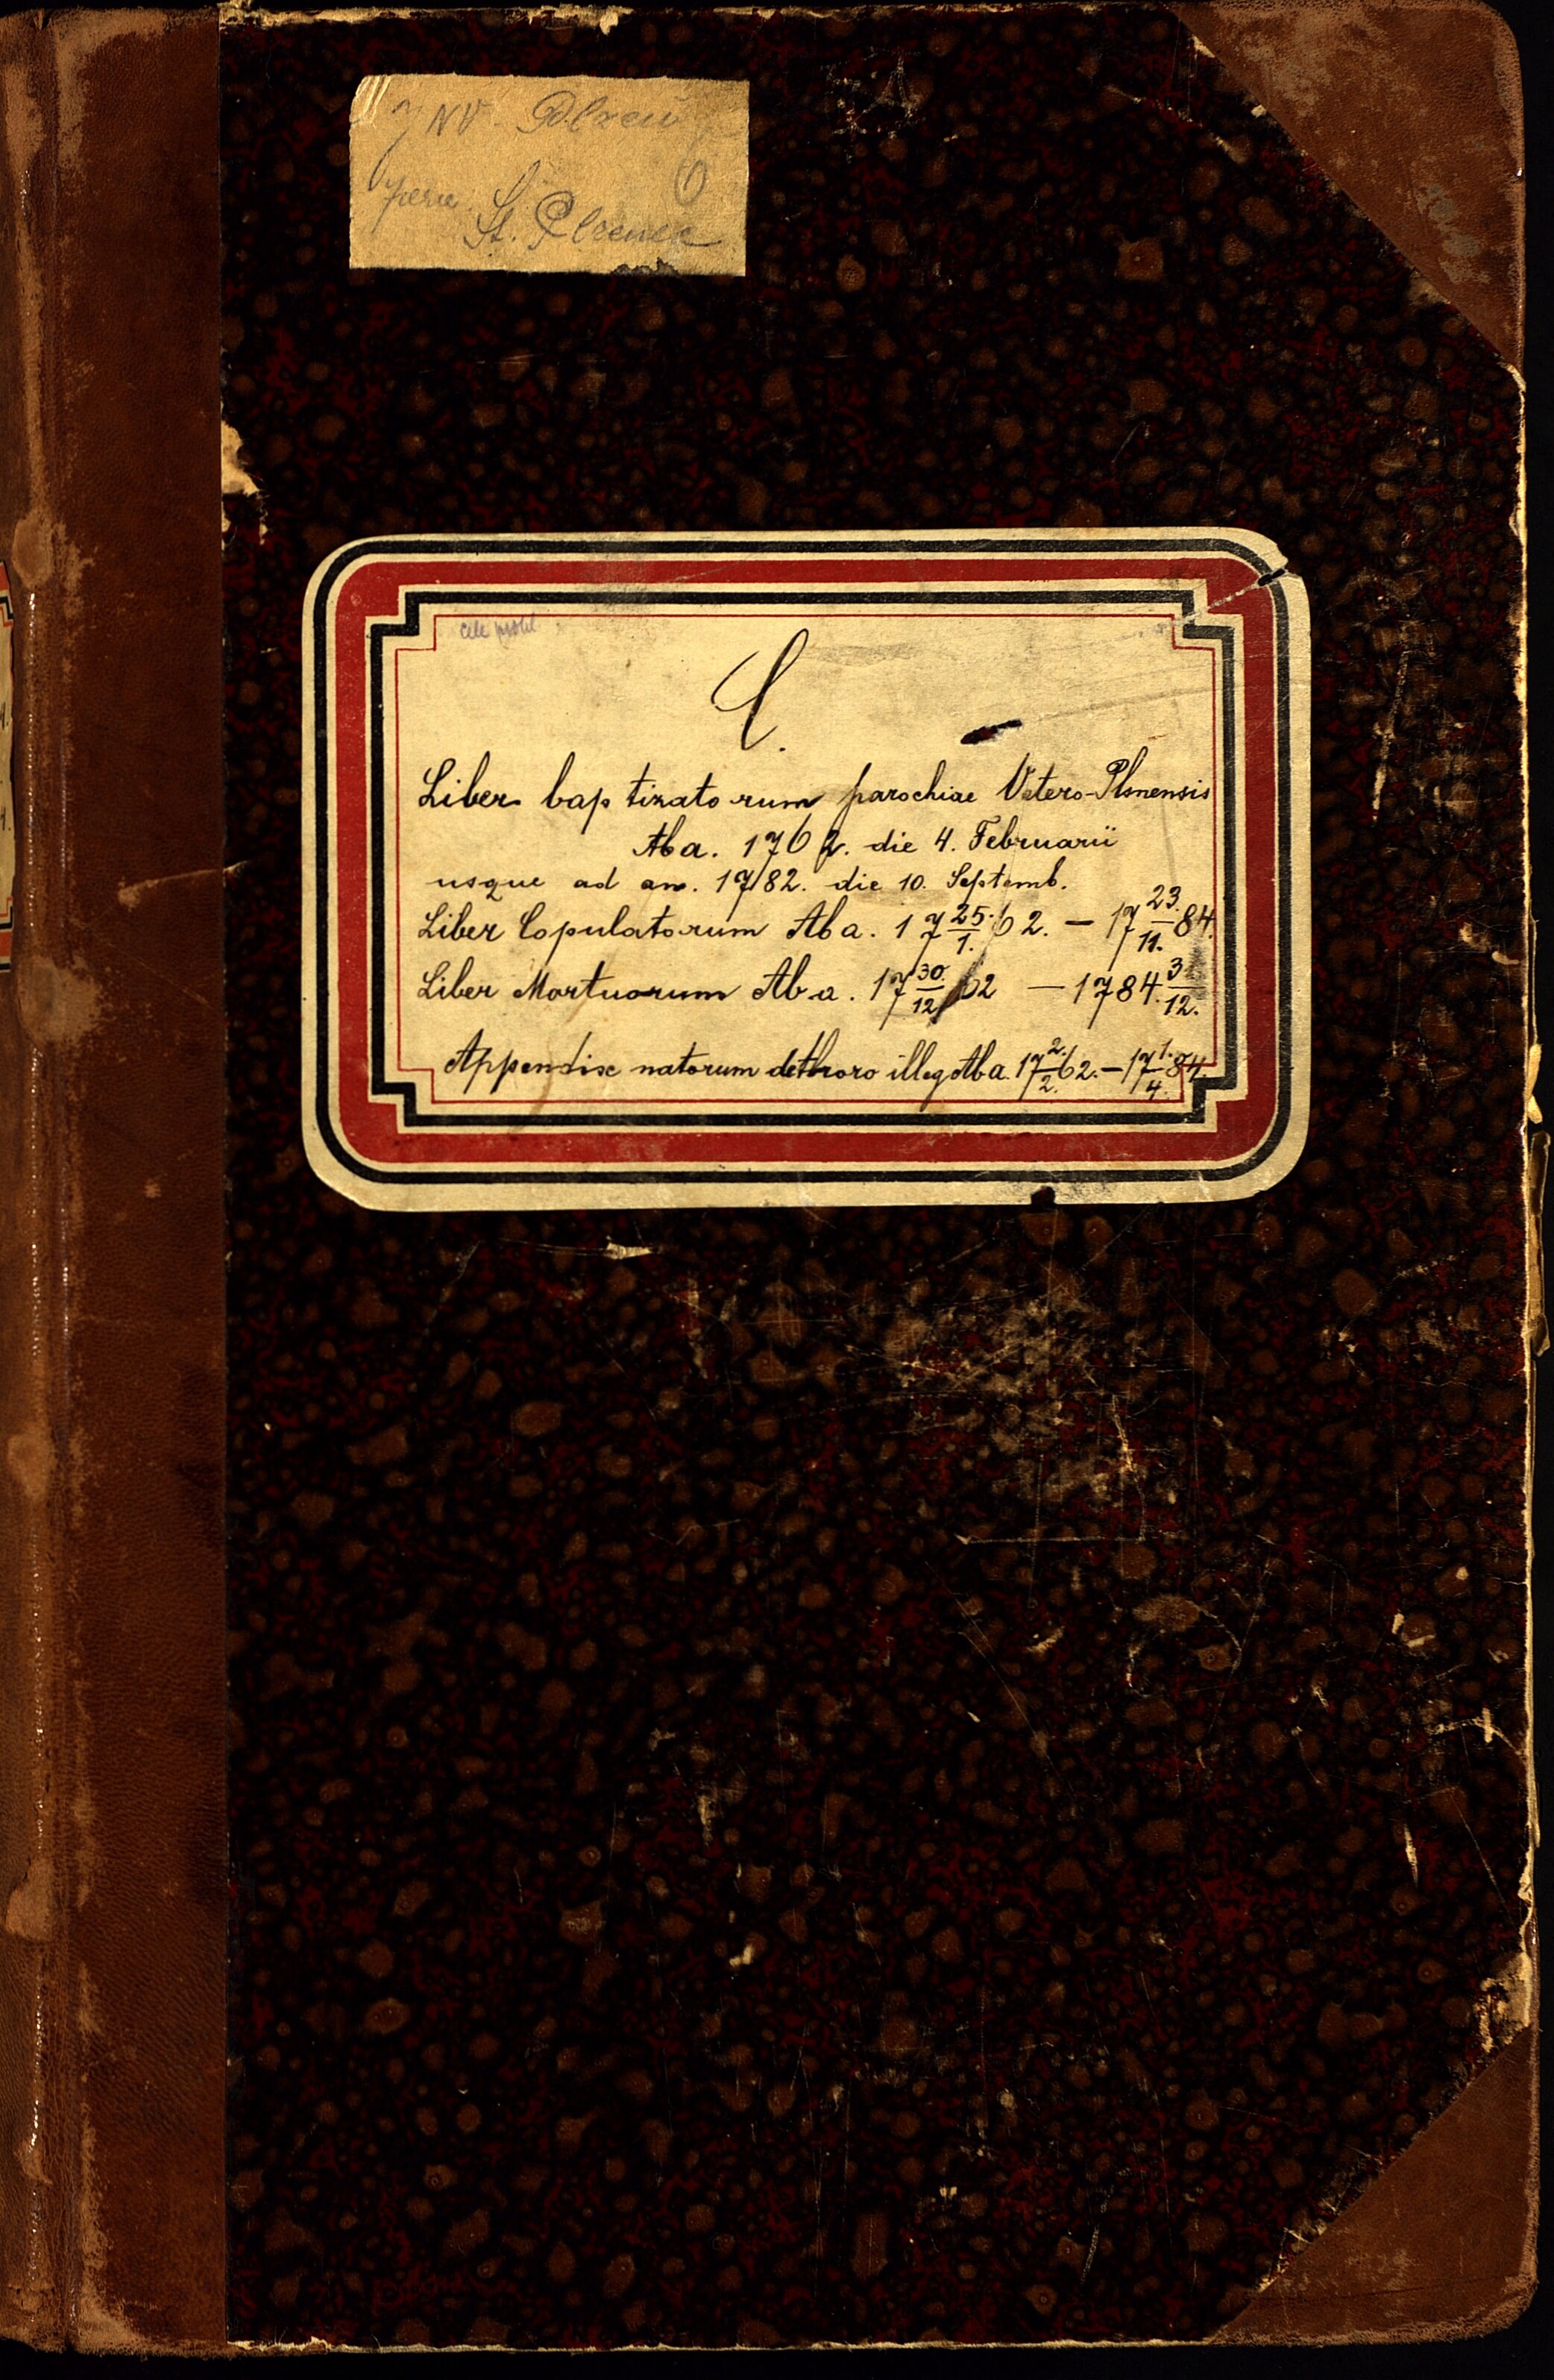 NV
St. Plzenec
C.
Liber baptizatorum parochiae Vetero-Plsnensis
Ab a. 1762. die 4. Februarii
usque ad an. 1782. die 10. Septemb.
Liber Copulatorum Ab a. 17 25./1. 62. — 17 23./11. 84.
Liber Mortuorum Ab a. 17 30./12 62 — 1784. 3/12.
Appendix natorum de thoro illeg Ab a. 17 2./2. 62. — 17 1./4. 84.